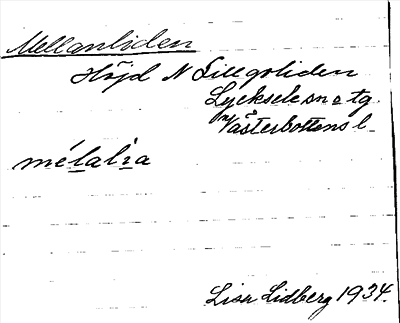 Mellanliden
Höjd N Lillgoliden
Lycksele sn o tg
Västerbottens l.
mélalıa
Lisa Lidberg 1934.